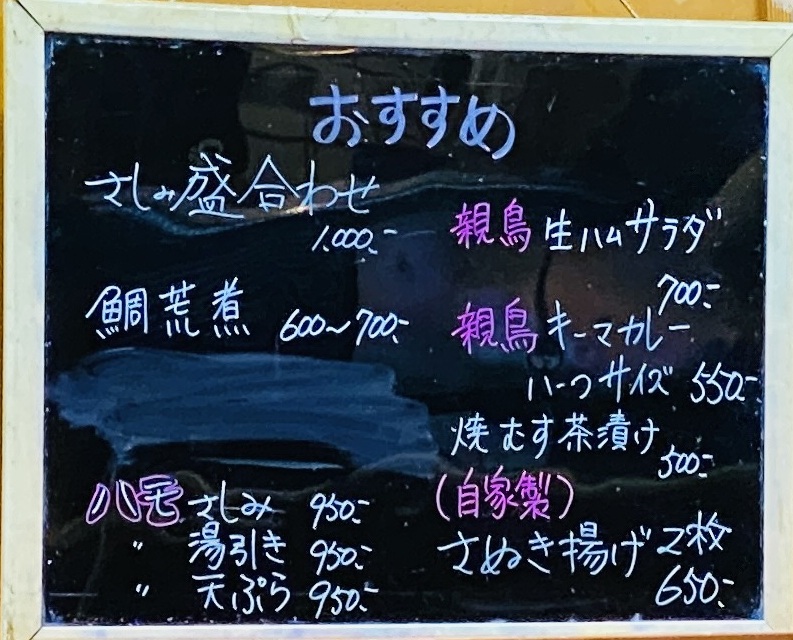 おすすめ
さしみ盛合わせ
1,000.-
鯛荒煮 600～700.-
ハモ さしみ 950.-
〃 湯引き 950.-
〃 天ぷら 950.-
親鳥 生ハムサラダ
700.-
親鳥 キーマカレー
ハーフサイズ 550.-
焼むす茶漬け
500.-
(自家製)
さぬき揚げ 2枚
650.-